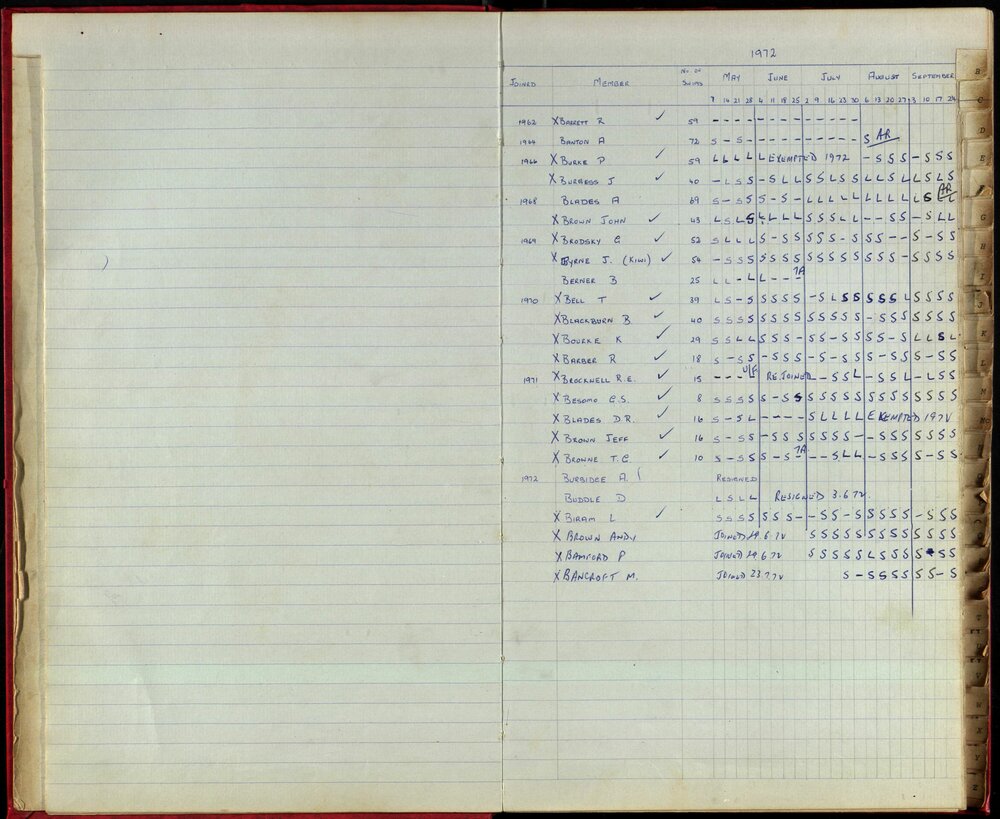 1972
JOINED MEMBER No. OF SWIMS MAY JUNE JULY AUGUST SEPTEMBER
7 14 21 28 4 11 18 25 2 9 16 23 30 6 13 20 27 3 10 17 24
1962 X BARRETT R ✓ 59 - - - - - - - - - - - - -
1964 BANTON A 72 S - S - - - - - - - - - - S AR
1966 X BURKE P ✓ 59 L L L L L EXEMPTED 1972 - S S S - S S S
X BURGESS J ✓ 40 - L S S - S L L S S L S S L L S L L S L S
1968 BLADES A 69 S - S S S - S - L L L L L L L L L L S L L AR
X BROWN JOHN ✓ 43 L S L S L L L L S S S L L - - S S - S L L
1969 X BRODSKY G ✓ 52 S L L L S - S S S S S - S S S - - S - S S
X BYRNE J. (KIWI) ✓ 54 - S S S S S S S S S S S S S S S - S S S S
BERNER B 25 L L - L L - - - TA
1970 X BELL T ✓ 39 L S - S S S S S - S L S S S S S L S S S S
X BLACKBURN B ✓ 40 S S S S S S S S S S S S S - S S S S S S S
X BOURKE K ✓ 29 S S L L S S S - S S - S S S S - S L L S L
X BARBER R ✓ 18 S - S S - S S S - S - S S - S S - S - S S
1971 X BROCKNELL R.E. ✓ 15 - - - - U/F RE.JOINED L - S S L - S S L - L S S
X BESOMO C.S. ✓ 8 S S S S S - S S S S S S S S S S S S S S S
X BLADES D.R. ✓ 16 S - S L - - - - S L L L L EXEMPTED 1972
X BROWN JEFF ✓ 16 S - S S - S S S S S S S - - S S S S S S S
X BROWNE T.C. ✓ 10 S - S S S - S - TA - - S L L - S S S S - S S
1972 BURBIDGE A. RESIGNED
BUDDLE D L S L L RESIGNED 3.6.72.
X BIRAM L ✓ S S S S S S S - - S S - S S S S S - S S S
X BROWN ANDY JOINED 29.6.72 S S S S S S S S S S S S S
X BAMFORD P JOINED 29.6.72 S S S S S L S S S S S S
X BANCROFT M. JOINED 23.7.72 S - S S S S S S - S
B
C
D
E
F
G
H
I
J
K
L
M
T
W
X
Y
Z